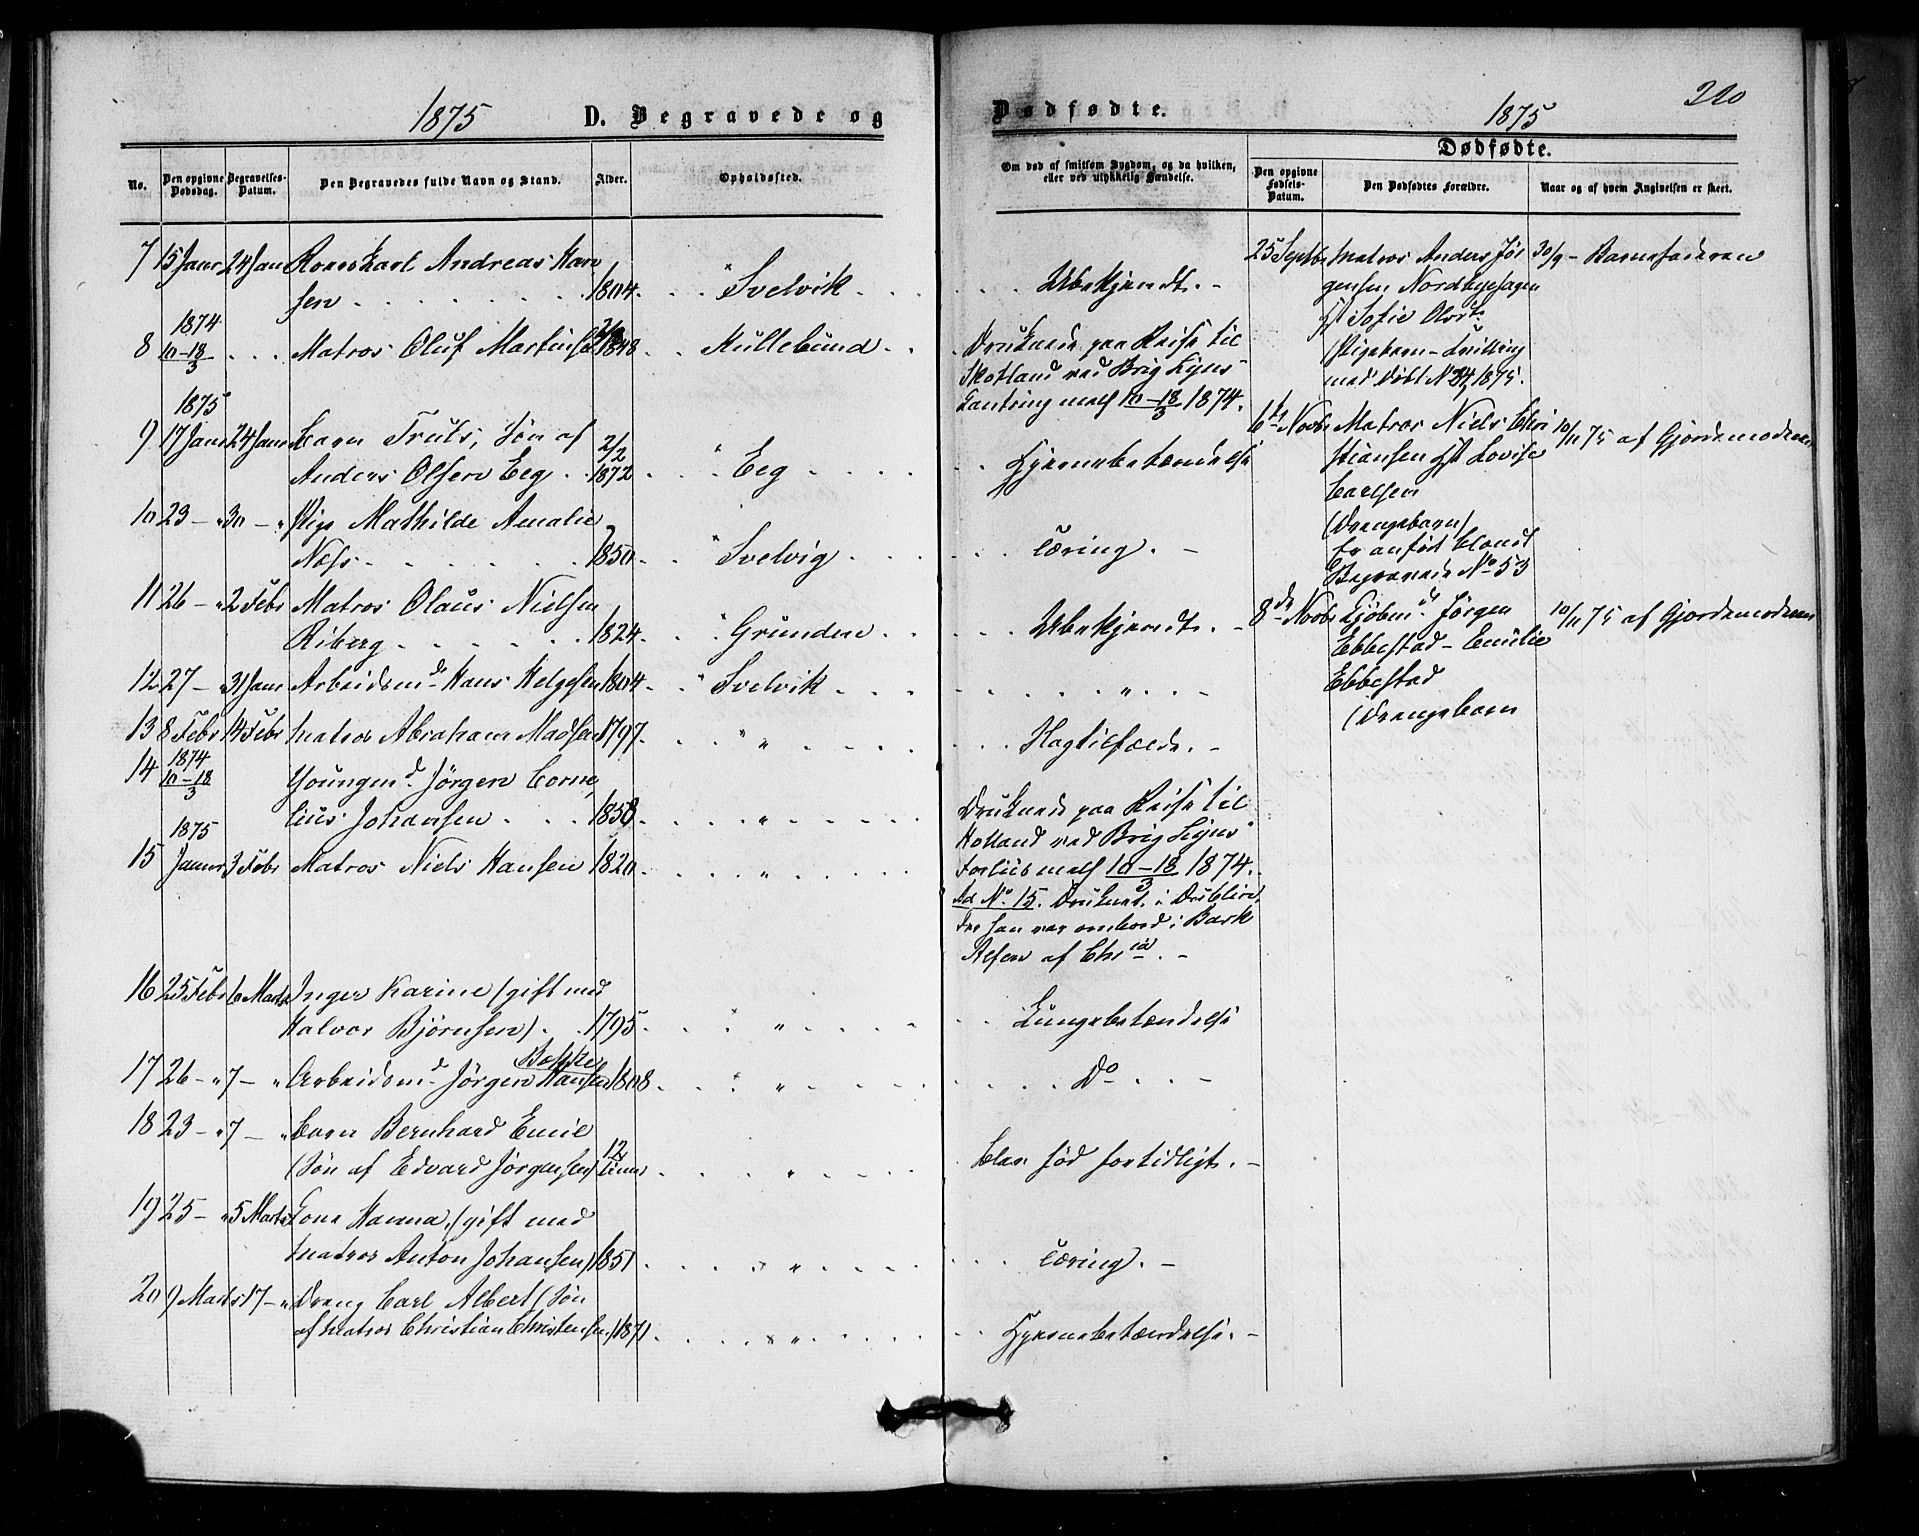 1875
D. Begravede og
No.
Den opgivne Dødsdag.
Begravelses-Datum.
Den Begravedes fulde Navn og Stand.
Alder.
Opholdssted.
7 15 Janr 24 Janr Andreas Han
sen 1804. Svelvik
1874
8 10-18/3 Matros Oluf Martinsen 1848 Kullebund
1875
9 17 Janr 24 Janr Barn Truls, Søn af 2/2
Anders Olsen Eeg 1872 Eeg
10 23 - " 30 - " Pige Mathilde Amalie
Næss 1850 Svelvig
11 26 - " 2 Febr Matros Olaus Nielsen
Riberg 1824 Grunden
12 27 - " 31 Janr Arbeidsmd Hans Helgesen 1804 Svelvik
13 8 Febr 14 Febr Matros Abraham Madsen 1797. "
1874
14 10-18/3 Youngmd. Jørgen Corne
lius Johansen 1850 "
1875
15 Januar 3 Febr Matros Niels Hansen 1820 "
16 25 Febr 6 Marts Inger Karine (gift med
Halvor Bjørnsen) 1795 "
Bakke
17 26 - " 7 - " Arbeidsmd Jørgen Hansen 1808 "
18 23 - " 7 - " Barn Bernhard Emil
(Søn af Edvard Jørgensen) 12 Timer "
19 25 - " 5 Marts Hanna, (gift med
Matros Anton Johansen) 1851 "
20 9 Marts 17 - " Dreng Carl Albert (Søn
af Matros Christian Christensen) 1871 "
Dødfødte.
1875
210
Om død af smitsom Sygdom, og da hvilken,
eller ved ulykkelig Hændelse.
Dødfødte.
Den opgivne Fødsels-Datum.
Den Dødfødtes Forældre.
Naar og af hvem Angivelsen er skeet.
Ubekjendt. -
Druknede paa Reise til
Skotland med Brig Lyns
mell 10-18/3 1874.
Hjernebetændelse
Tæring. -
Ubekjendt. -
" -
Slagtilfælde. -
Druknede paa Reise til
Holland med Brig Lyns
Forliis mell 10-18/3 1874.
Ad No. 15. Druknet i Dublin,
der han var ombord i Bark
af Chria. -
Lungebetændelse
Do -
Blev fød fortidligt. -
Tæring. -
Hjernebetændelse. -
25 Septbr Matros Anders Jør 30/9 - Barnefaderen
gensen Nordbyehagen
Sofie Olsdt.
(Pigebarn - Tvilling
med Døbt N 24, 1875.
6te Novbr Matros Niels Chri 10/11 75 af Gjordemoderen
stiansen Lovise
Carlsen
(Drengebarn)
Er anført blandt
Begravede No 53
8de Novbr Kjøbmd Jørgen 10/11 75 af Gjordemoderen
Ebbestad - Emilie
Ebbestad
(Drengebarn